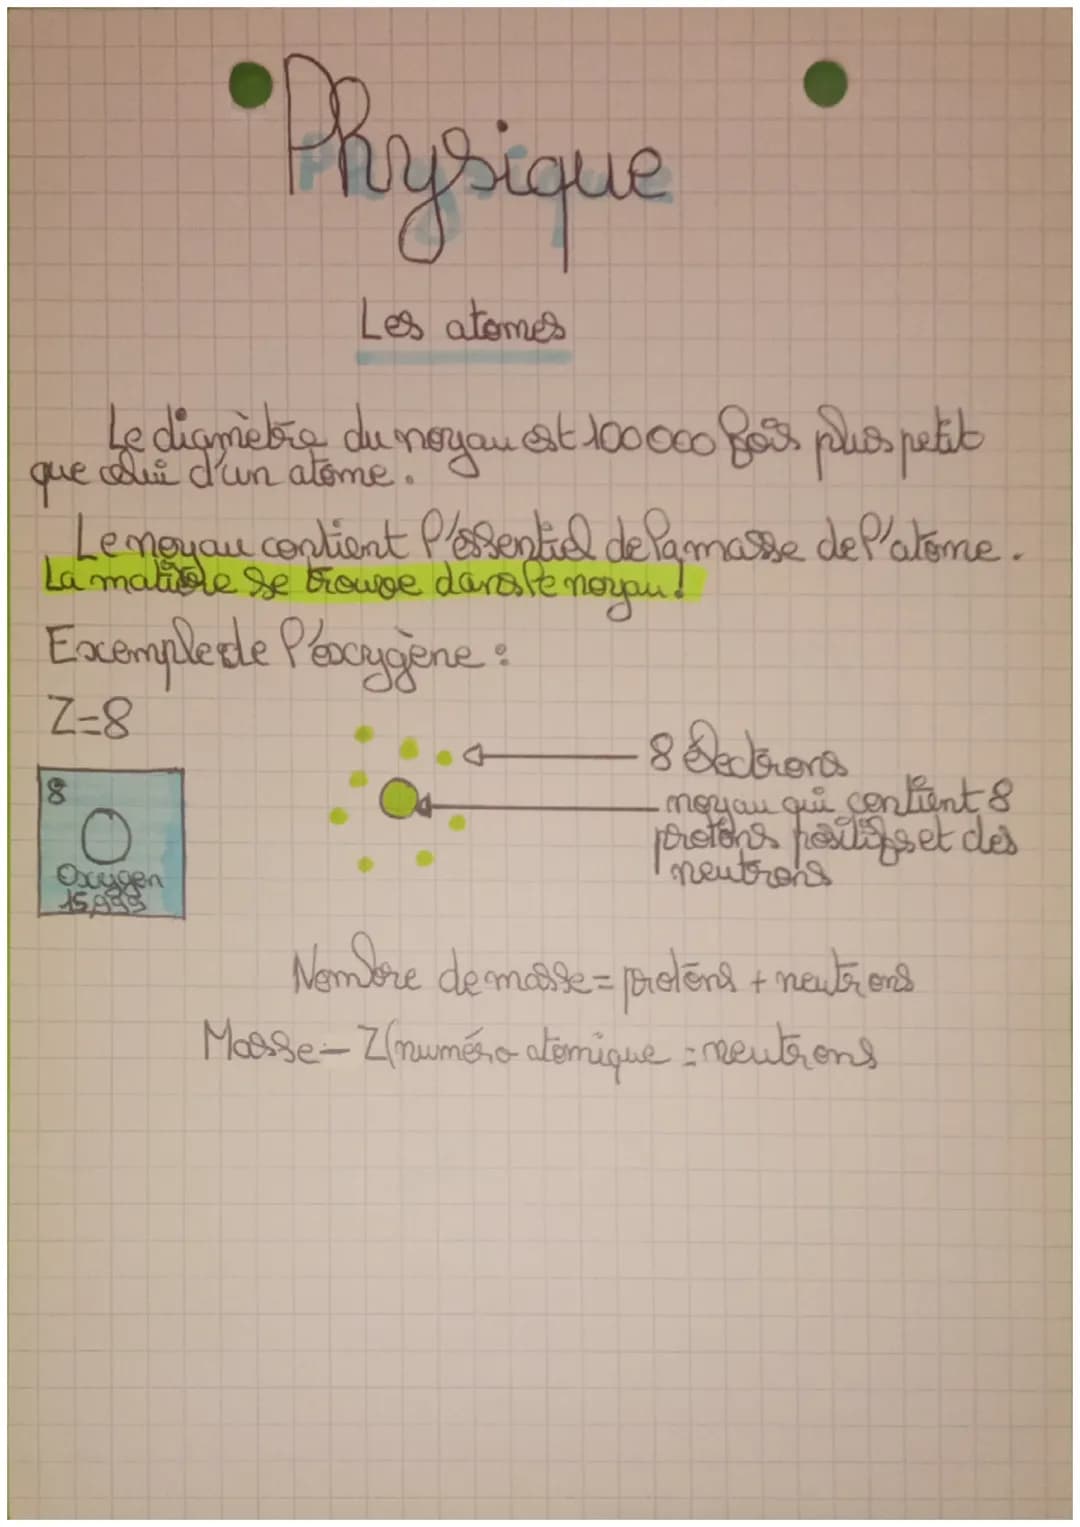 Physique
Les atomes
Le diamètre du noyau est 100000 fois plus petit
que celui d'un atome.
Le noyau contient l'éssentiel de la masse de l'atome.
La matière se trouve dans le noyau!
Exemple de l'éxygène :
Z=8
8 électrons
8
noyau qui contient 8
protons positifs et des
neutrons
O
Oxygen
15,999
Nombre de masse = protons + neutrons
Masse - Z(numéro atomique = neutrons